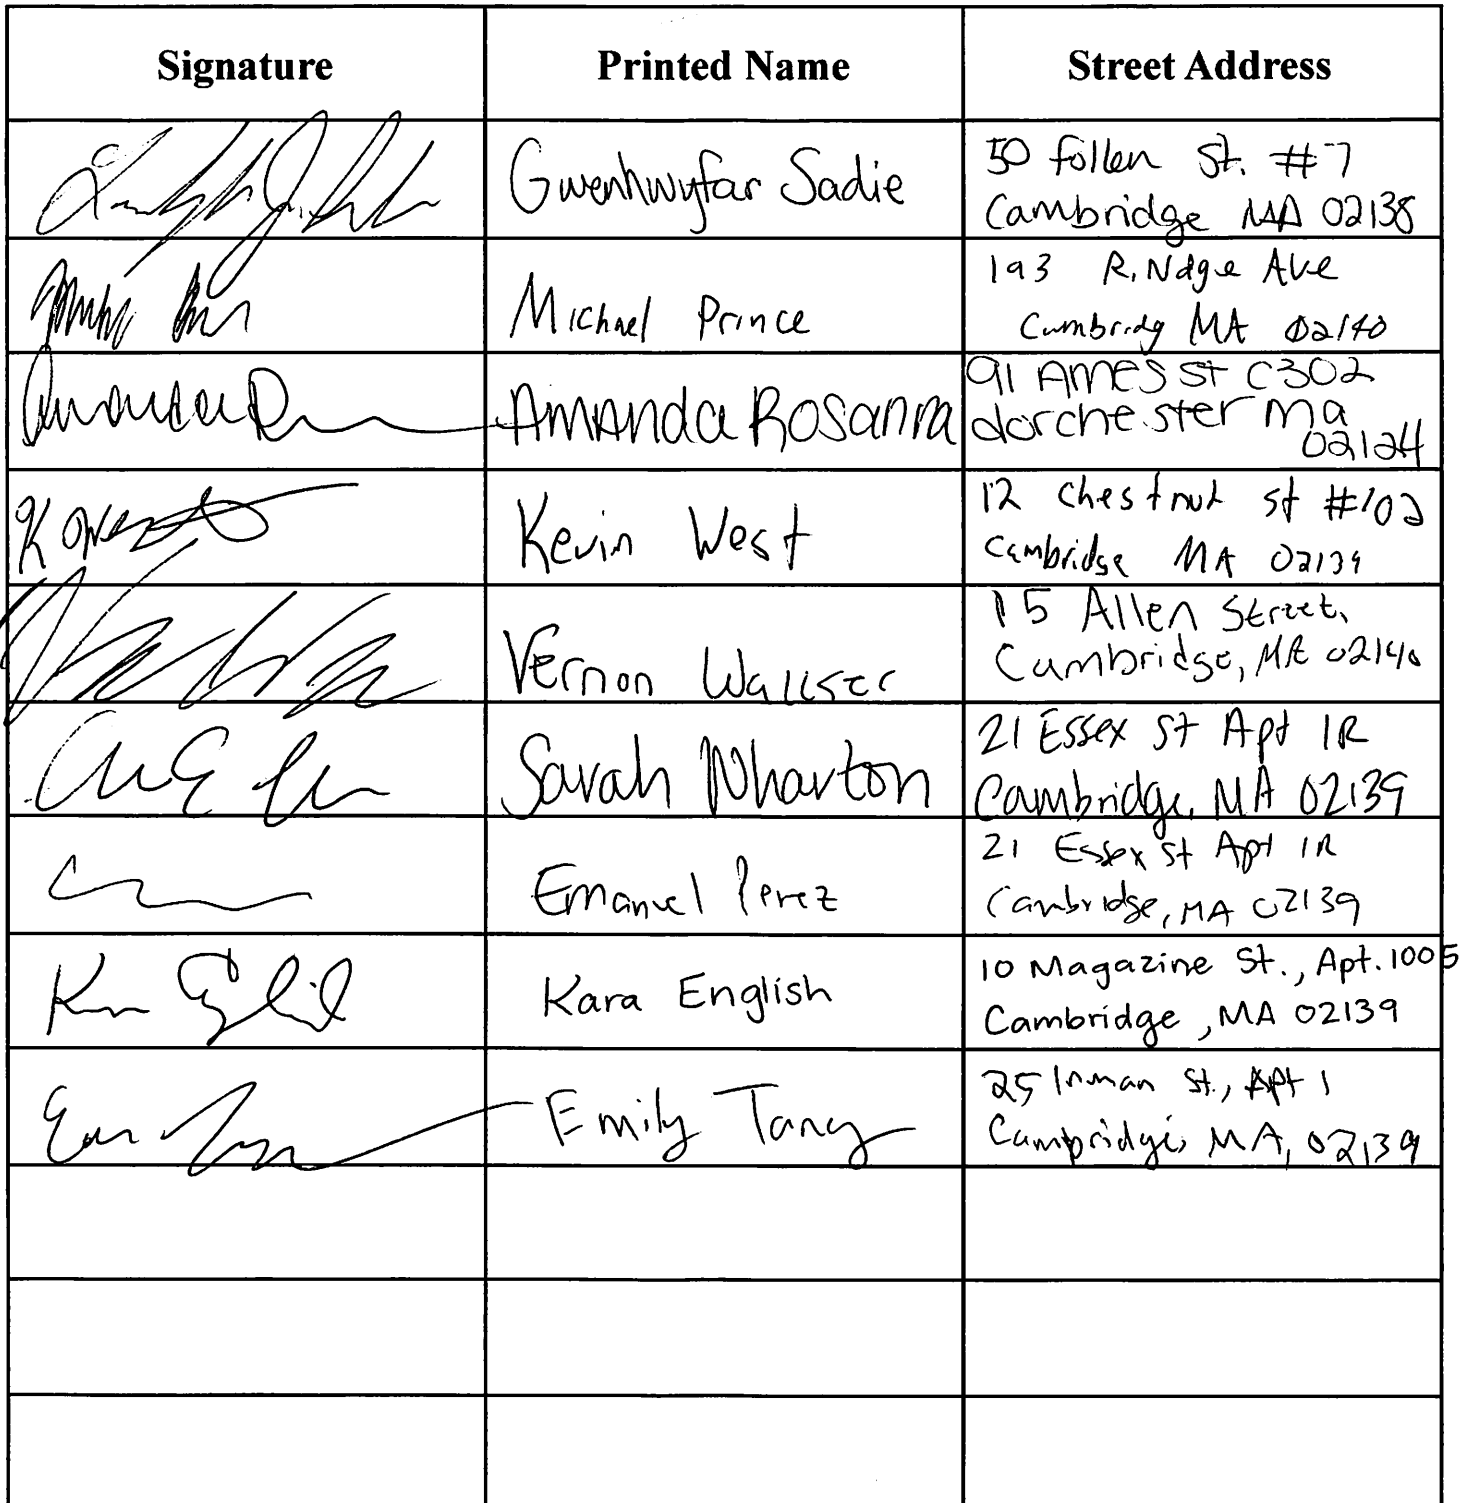 Signature Printed Name Street Address
Gwenhwyfar Sadie
50 Follen St. #7
Cambridge MA 02138
Michael Prince
193 Rindge Ave
Cambridg MA 02140
Amanda Rosanna
91 Ames St C302
dorchester ma
02124
Kevin West
12 Chestnut st #102
Cambridge MA 02139
Vernon
15 Allen Street,
Cambridge, MA 02140
Sarah Wharton
21 Essex St Apt 1R
Cambridge, MA 02139
Emanuel Perez
21 Essex St Apt 1R
Cambridge, MA 02139
Kara English
10 Magazine St., Apt. 1005
Cambridge, MA 02139
Emily Tang
25 Inman St., Apt 1
Cambridge, MA, 02139